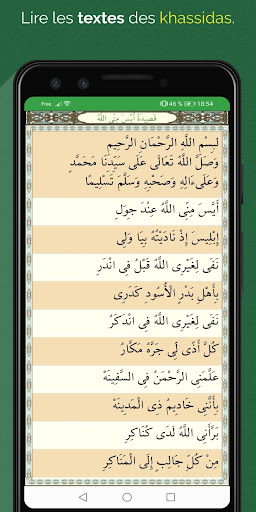 Lire les textes des khassidas.
Free 46 % 18:54
قَصِيدَةُ أَيَّسَ مِنِّى اللَّهُ
بِسْمِ اللَّهِ الرَّحْمَانِ الرَّحِيمِ
وَصَلَّى اللَّهُ تَعَالَى عَلَى سَيِّدِنَا مُحَمَّدٍ
وَعَلَىٰ ءَالِهِ وَصَحْبِهِ وَسَلَّمَ تَسْلِيمًا
أَيَّسَ مِنِّى اللَّهُ عِنْدَ جِوَلِ
إِبْلِيسَ إِذْ نَادَيْتُهُ بِيَا وَلِى
نَفَى لِغَيْرِى اللَّهُ قَبْلُ فِى انْدَرِ
بِأَهْلِ بَدْرٍ الْأُسُودِ كَدَرِى
نَفَى لِغَيْرِى اللَّهُ فِى انْدَكَرُ
كُلَّ أَذًى لِى جَرَّهُ مَكَّارُ
عَلَّمَنِى الرَّحْمَنُ فِى السَّفِينَهْ
بِأَنَّنِى خَادِيمُ ذِى الْمَدِينَهْ
بَرَّأَنِى اللَّهُ لَدَى كُنَاكِرِ
مِنْ كُلِّ جَالِبٍ إِلَى الْمَنَاكِرِ